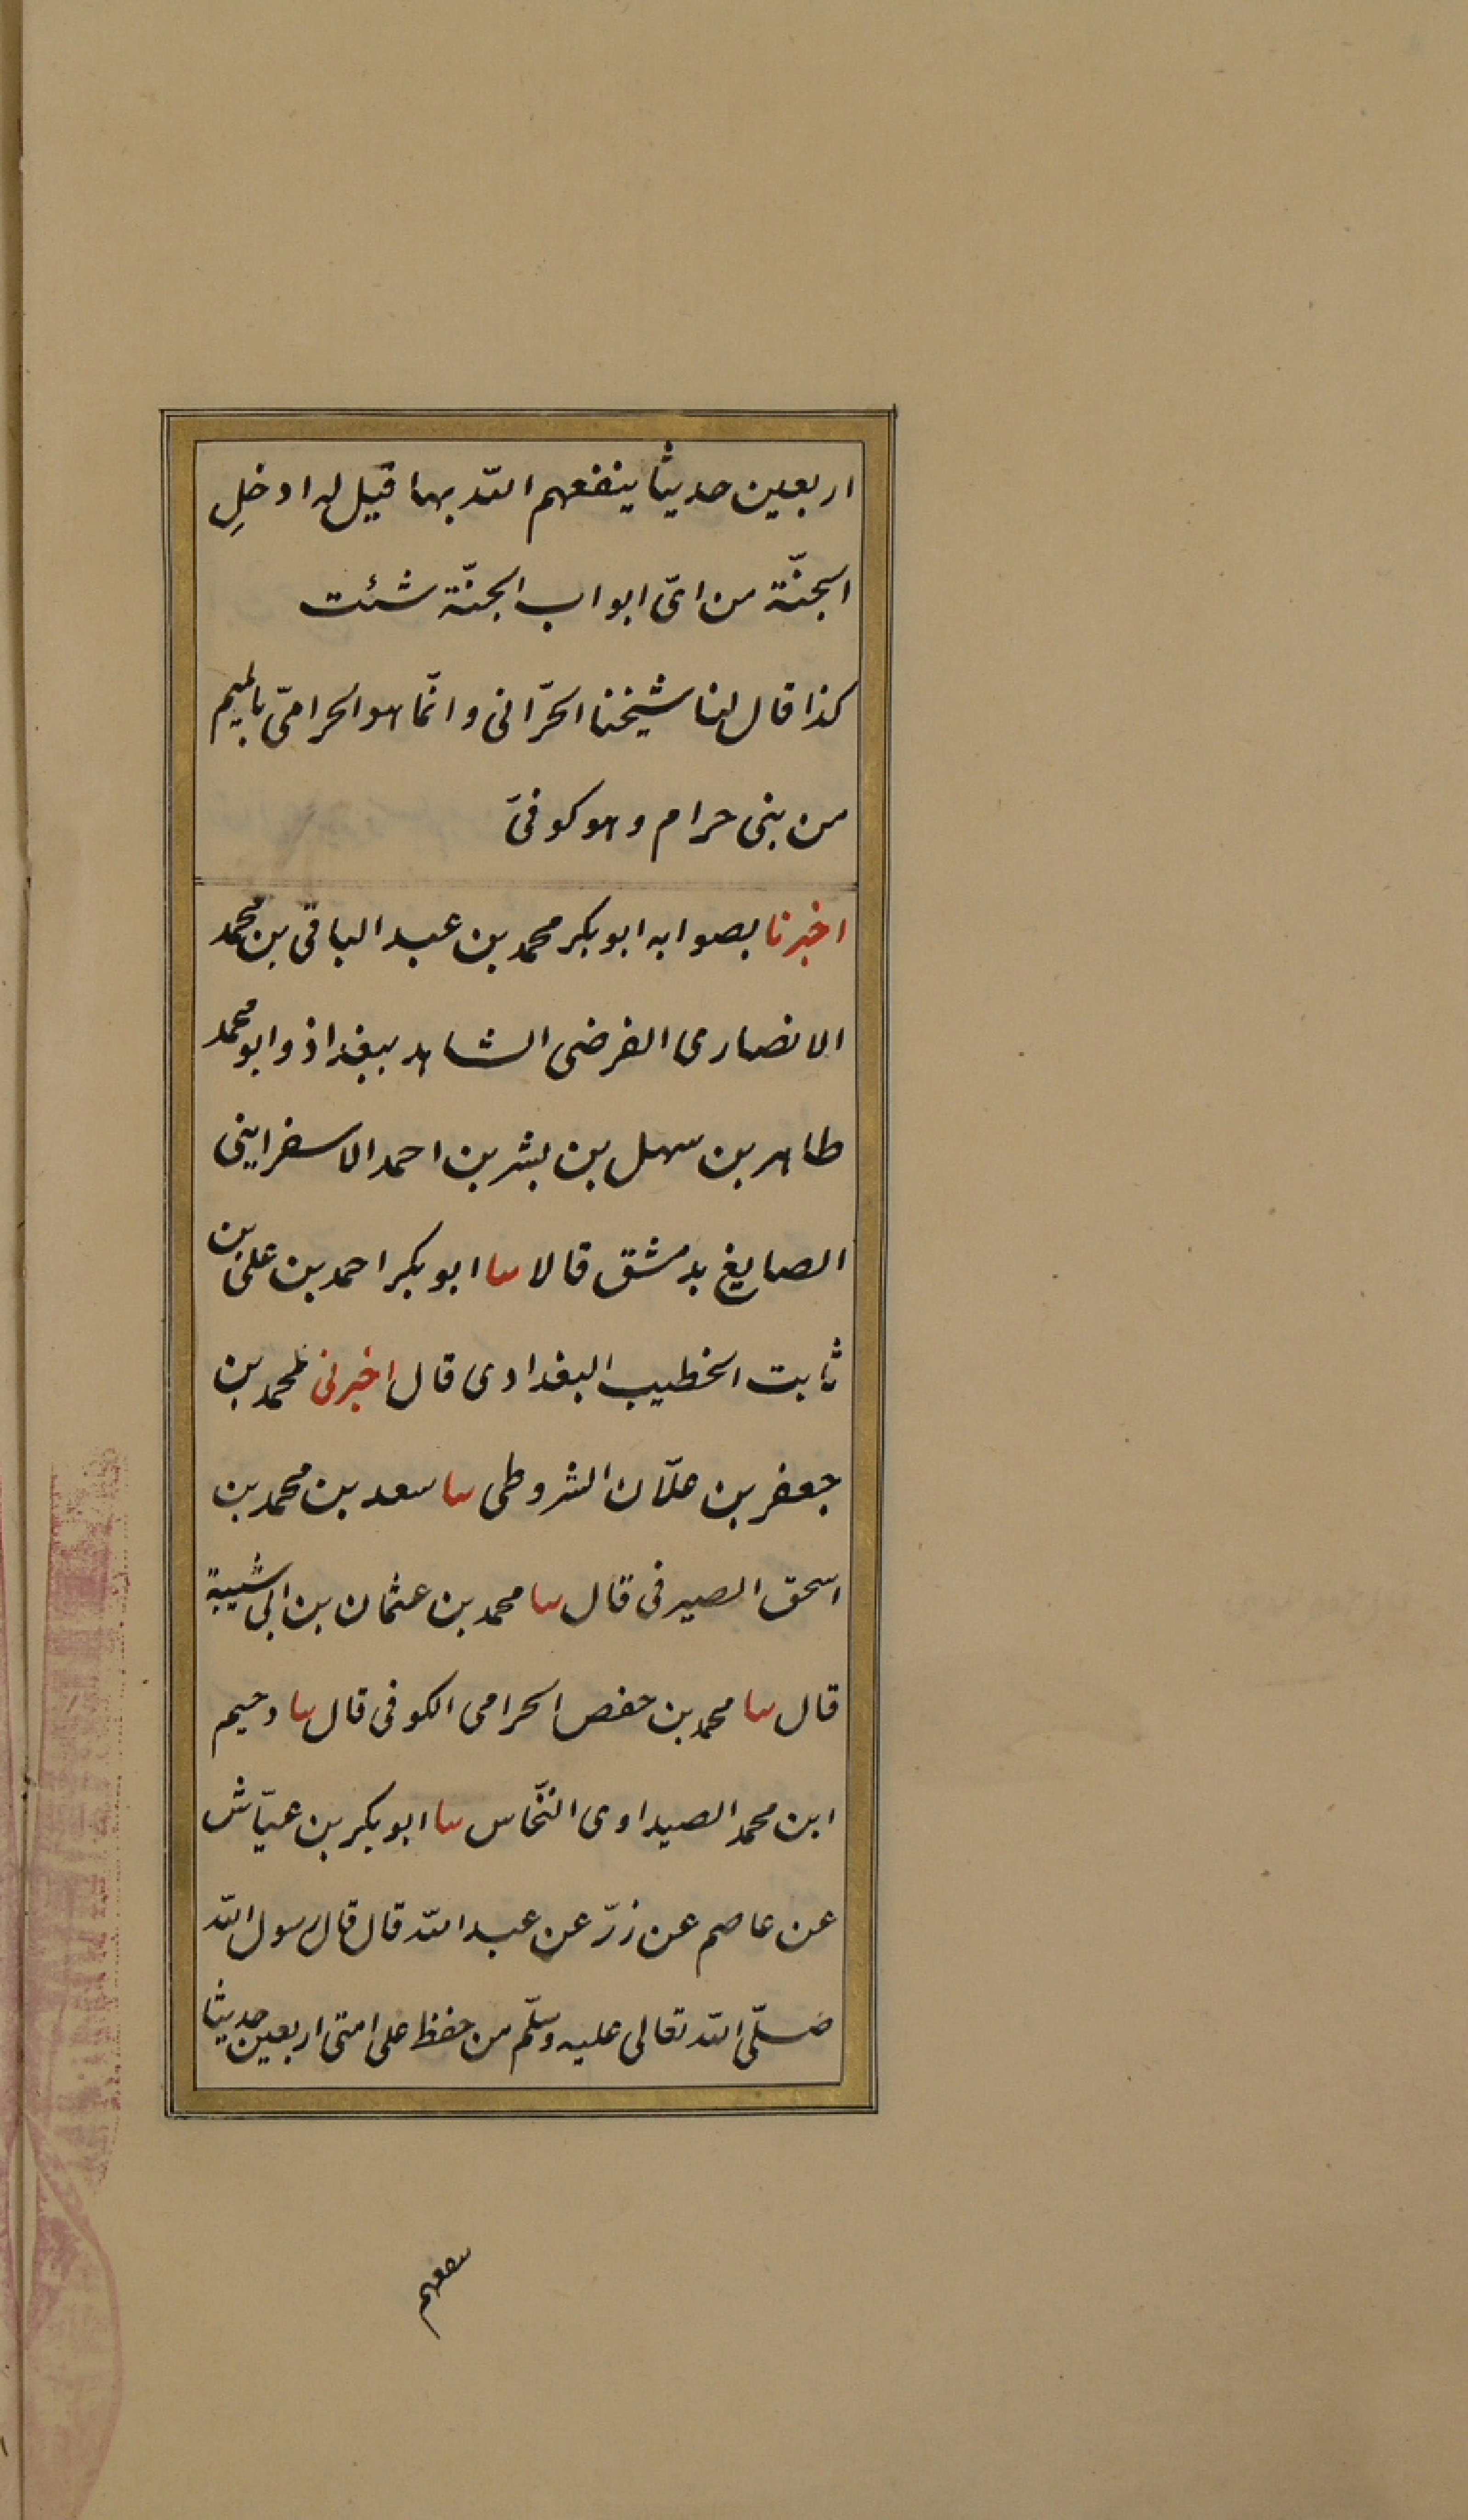 اربعين حديثا ينفعهم الله بها قيل له ادخلِ
الجنّة من ايّ ابواب الجنّة شئت
كذا قال لنا شيخنا الحرّانى وانّما هو الحرامىّ بالميم
من بنى حرام وهو كوفىّ
اخبرنا بصوابه ابو بكر محمد بن عبد الباقى بن محمد
الانصارى الفرضى الشاهد ببغداذ وابو محمد
طاهر بن سهل بن بشر بن احمد الاسفراينى
الصايغ بدمشق قالا سا ابو بكر احمد بن على بن
ثابت الخطيب البغدادى قال اخبرنى محمد بن
جعفر بن علّان الشروطى سا سعد بن محمد بن
اسحق الصيرفى قال سا محمد بن عثمان بن ابى شيبة
قال سا محمد بن حفص الحرامى الكوفى قال سا دحيم
ابن محمد الصيداوى النخّاس سا ابو بكر بن عيّاش
عن عاصم عن زرّ عن عبد الله قال قال رسول الله
صلّى الله تعالى عليه وسلّم من حفظ على امتى اربعين حديثا
ينفعهم